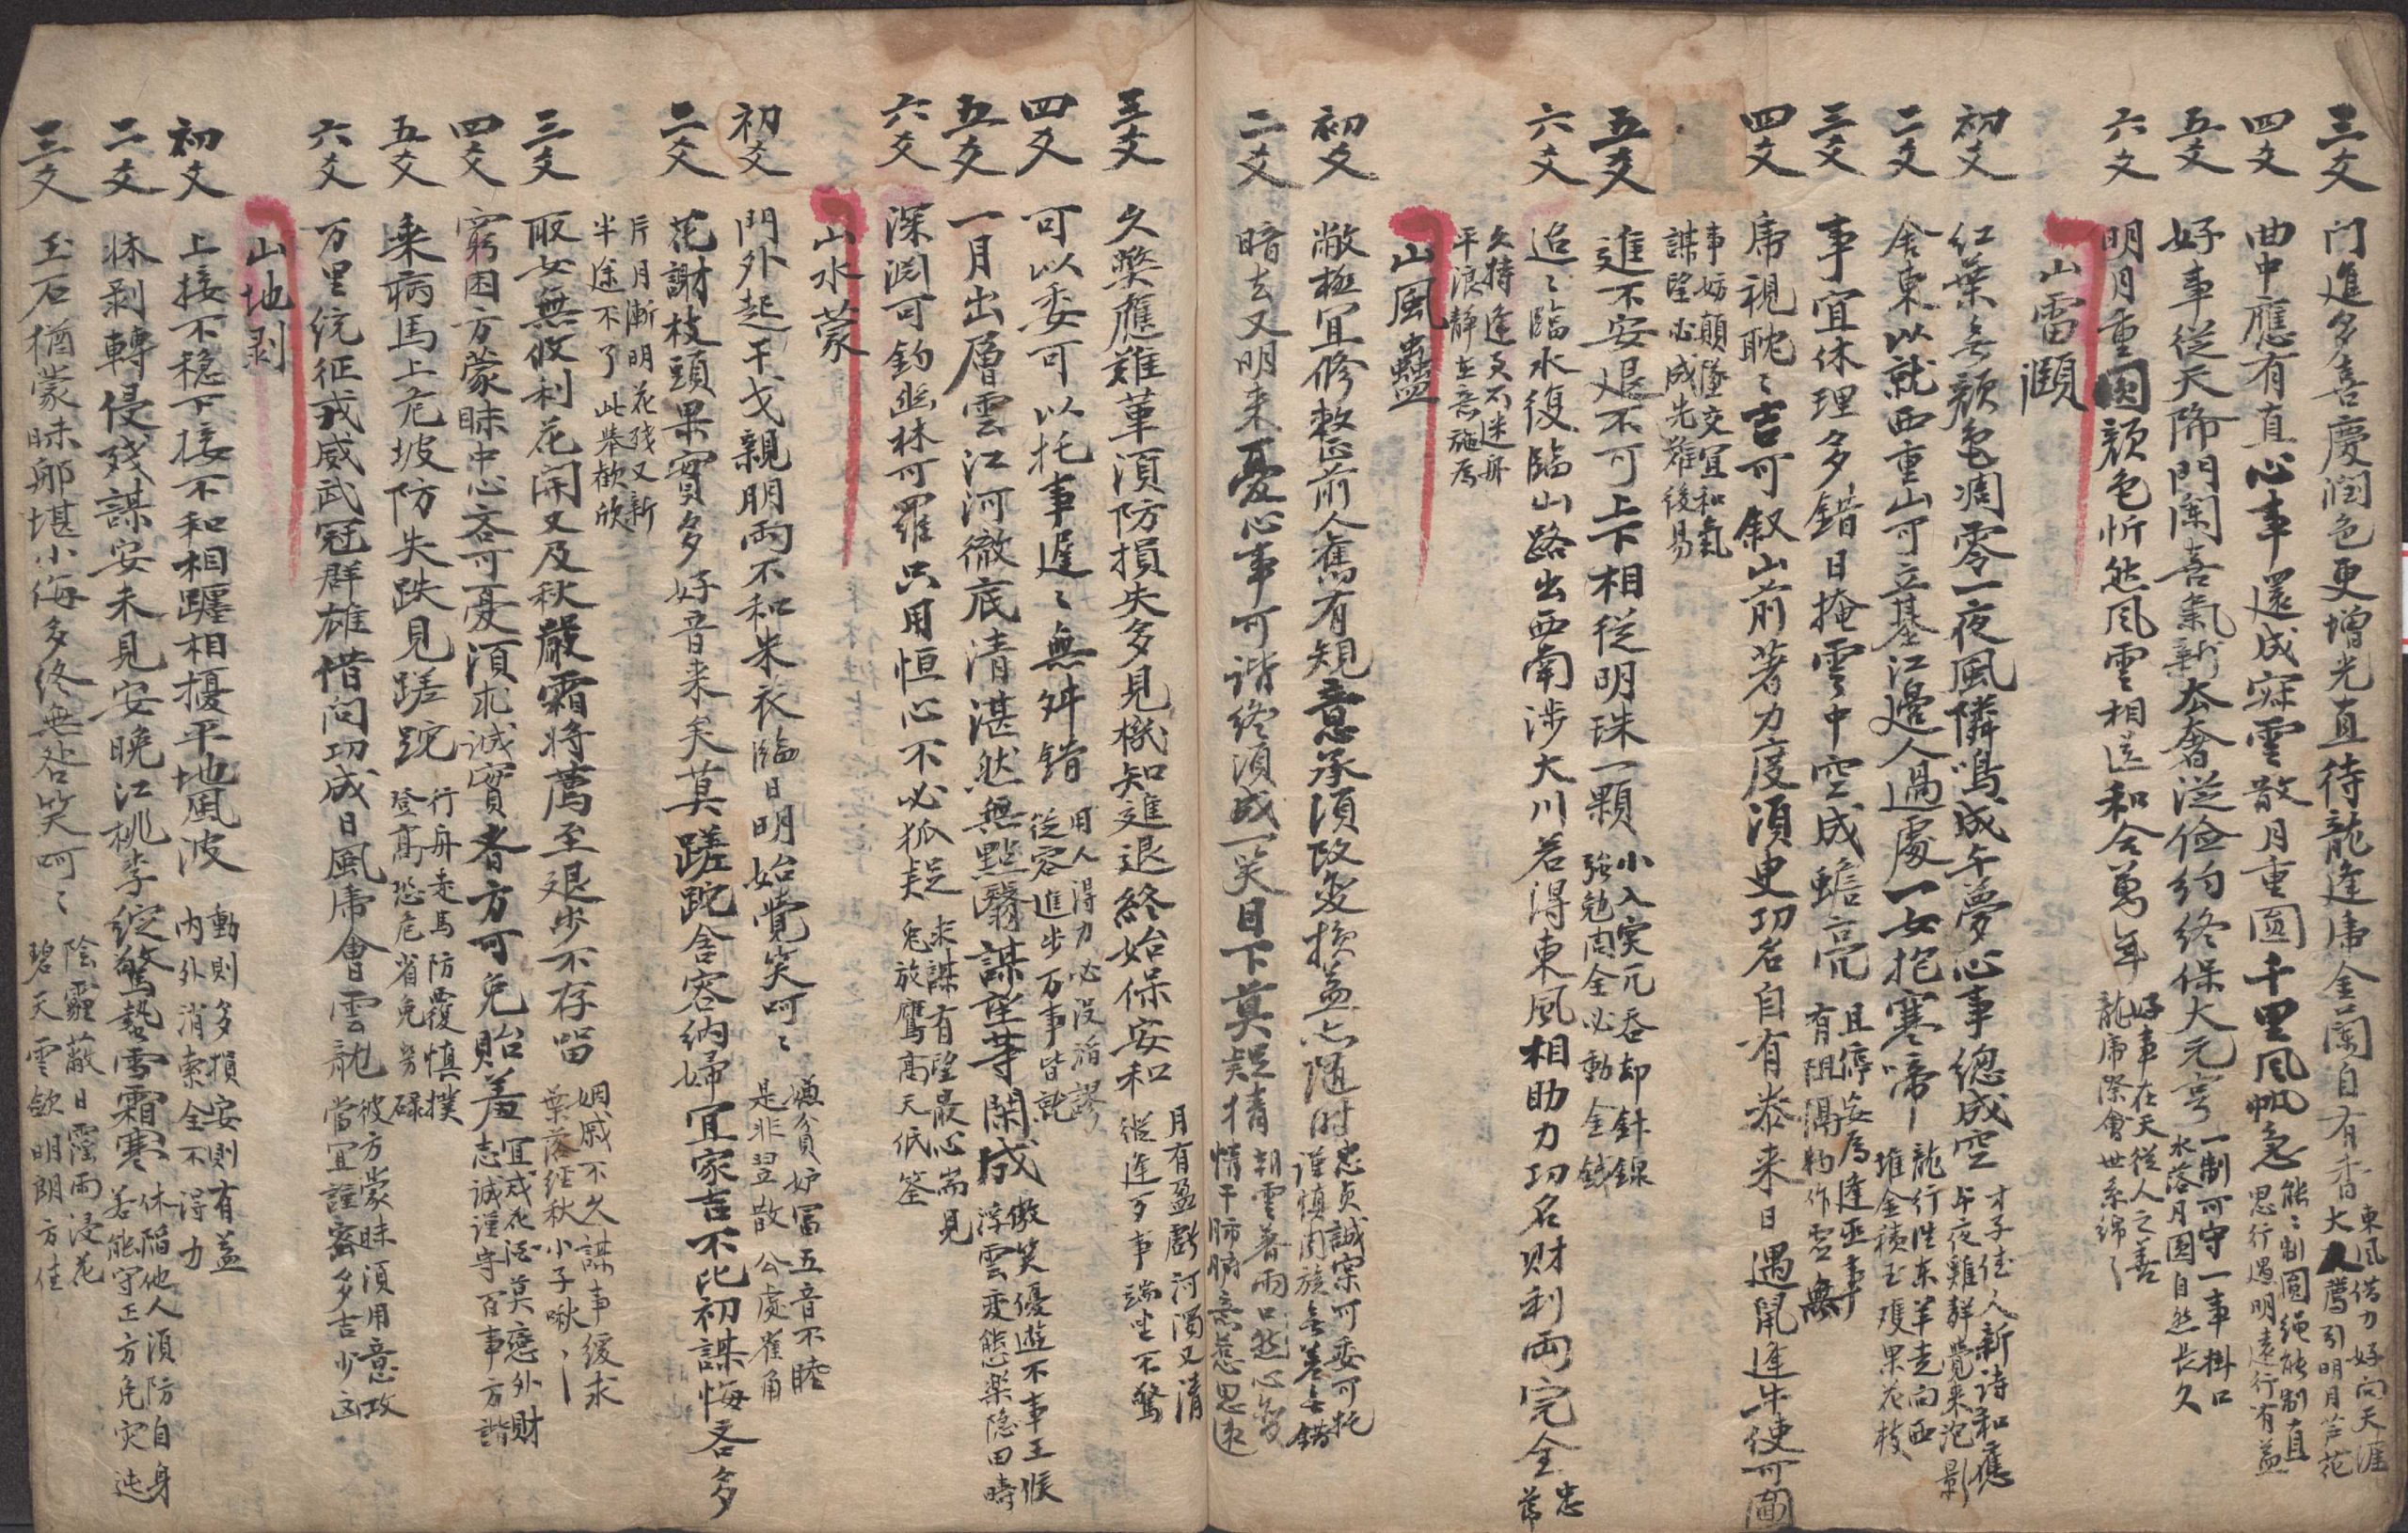 三爻 门進多喜慶润色更增光直待龍逢虎金蘭自有香大人 東風借力好向天涯
薦引明月芦花
四爻 曲中應有直心事還成寐雲散月重圓千里风帆急 能制圓绳能制直
思行遇明遠行有益
五爻 好事従天降門闌喜氣新太奢従儉约终保大元亨 一制可守一事掛口
水落月圓自然長久
六爻 明月重圓颜色忻然风雲相送和合萬年 好事在天從人之善
龍虎際會世系綿〻
山雷頤
初爻 红葉無颜色凋零一夜風隣鳴成午夢心事總成空 才子佳人新诗和應
午夜雞群覺来泡影
二爻 舍東以就西重山可立基江邊人過處一女抱寒啼 龍行性东羊走向西
堆金積玉殘果花枝
三爻 事宜休理多錯日掩雲中空成蟾亮 且停妄為逢巫事
有阻隔物作虚無
四爻 虎視眈〻吉可叙山前著力度須更功名自有泰来日遇鼠逢牛便可圖
事妨顛墜交宜和氣
謀望必成先難後易
五爻 進不安退不可上下相從明珠一颗 小入突兀吞却針線
強勉周全必動金錢
六爻 迨〻臨水復臨山路出西南涉大川若得東風相助力功名财利両完全 忠
久特逢更不迷舟
平浪静生意施為
山風蠱
初爻 敝極宜修整正前人舊有規意承須改变损益亦随时 忠贞誠寀可委可托
谨慎周旋無差無錯
二爻 暗去又明来憂心事可谐终須成一笑目下莫疑猜 朝雲暮雨口然心多
情干肺腑意惹思速
三爻 久獘應難革須防損失多見機知進退終始保安和 月有盈虧河濁又清
從逢多事端坐不驚
四爻 可以委可以托事遲〻無舛错 用人得力必没谄謬
從容進步万事皆就
五爻 一月出層雲江河徹底清湛然無點翳謀望等閑成 傲笑優遊不事王侯
浮雲变態樂隐田畴
六爻 深渊可釣幽林可羅只用恒心不必狐疑 求謀有望最必耑見
兔放鷹高天低筌
山水蒙
初爻 門外起干戈親朋両不和朱衣臨日明始覺笑呵〻 嫌貧妒冨五音不睦
是非翌散公處雀角
二爻 花謝枝頭果實多好音来矣莫蹉跎舍容納婦宜家吉不比初謀悔吝多
片月漸明花残又新
半途不了此举歡欣
三爻 取女無攸利花開又及秋嚴霜将薦至退步不存留 姻戚不久謀事缓求
葉落经秋小子啾〻
四爻 窮困方蒙昧中心吝可憂須求誠實者方可免貽羞 宜戒花酒莫恋外财
志诚谨守百事方諧
五爻 乘病馬上危坡防失跌見蹉跎 行舟走馬防覆慎撲
登高恐危省免努碌
六爻 万里统征戎威武冠群雄惜问功成日風虎會雲龍 彼方蒙昧須用意攻
當宜謹密多吉少凶
山地剥
初爻 上接不穏下接不和相躔相擾平地風波 動則多損安則有益
内外消索全不得力
二爻 牀剥轉侵残謀安未見安晚江桃李綻驚蟄雪霜寒 休陷他人須防自身
若能守正方免灾迍
三爻 玉石猶蒙昧那堪小侮多终無咎笑呵〻 陰霾蔽日霪雨浸花
碧天雲歛明朗方佳